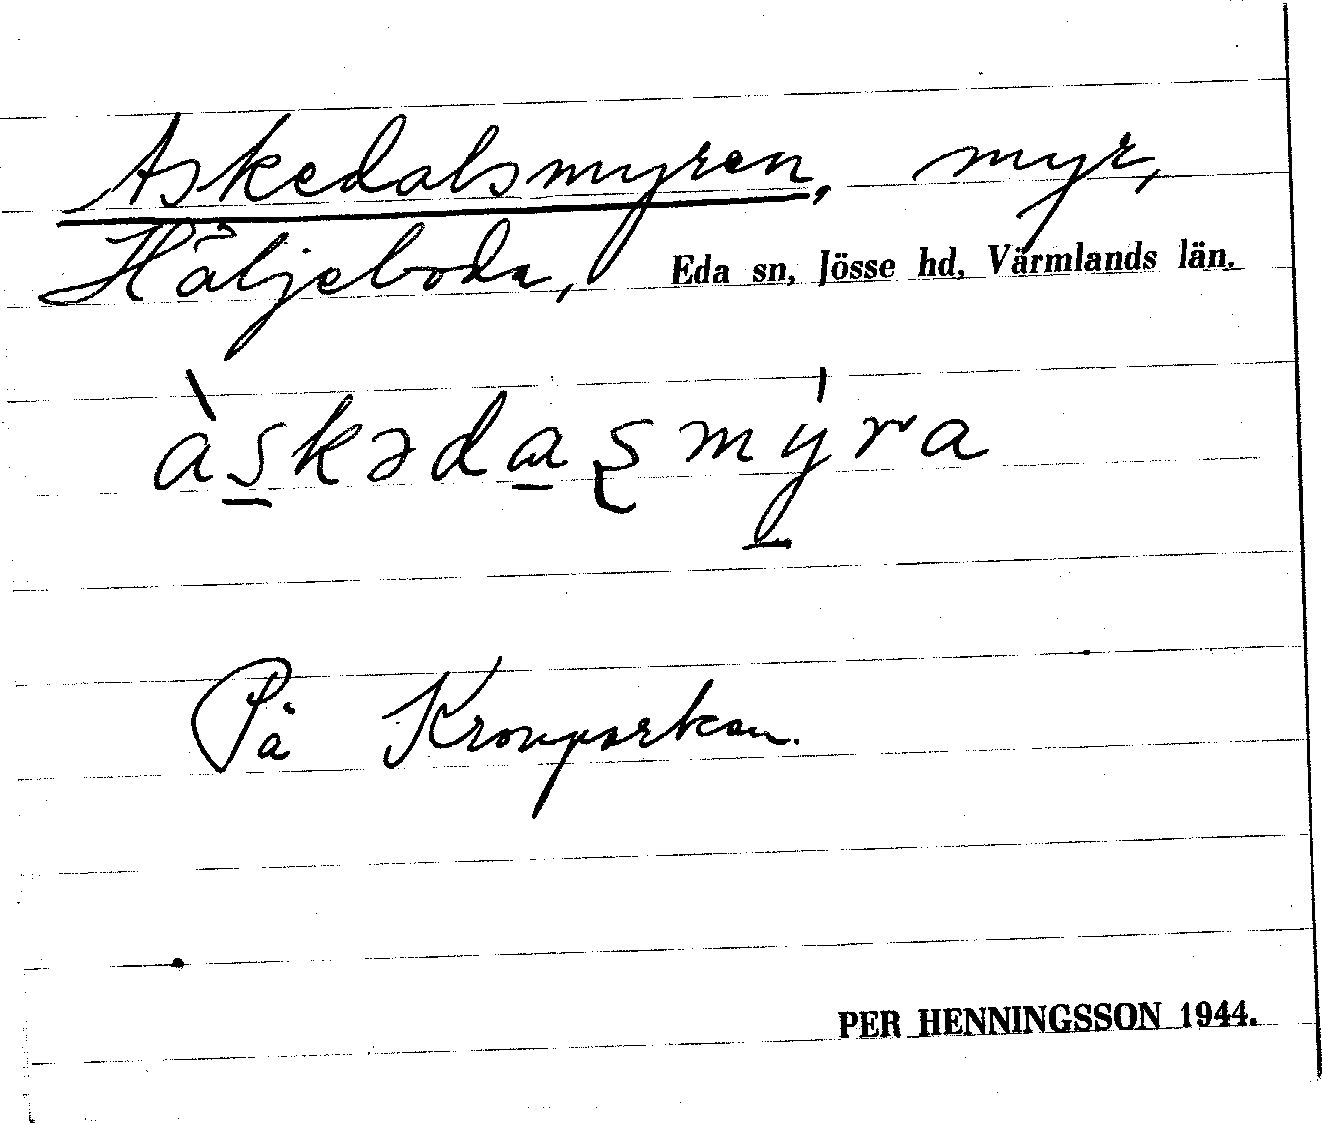 Askedalsmyren, myr,
Häljeboda, Eda sn, Jösse hd, Värmlands län.
às̱kəda̱ʂmý̱ra
På Kronparken.
PER HENNINGSSON 1944.